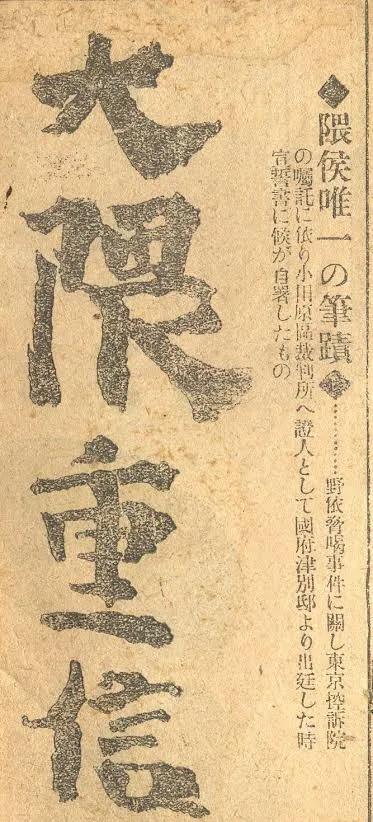 ◆隈侯唯一の筆蹟◆………野依脅喝事件に關し東京控訴院
の囑託に依り小田原區裁判所へ證人として國府津別邸より出廷した時
宣誓書に候が自署したもの
大隈重信